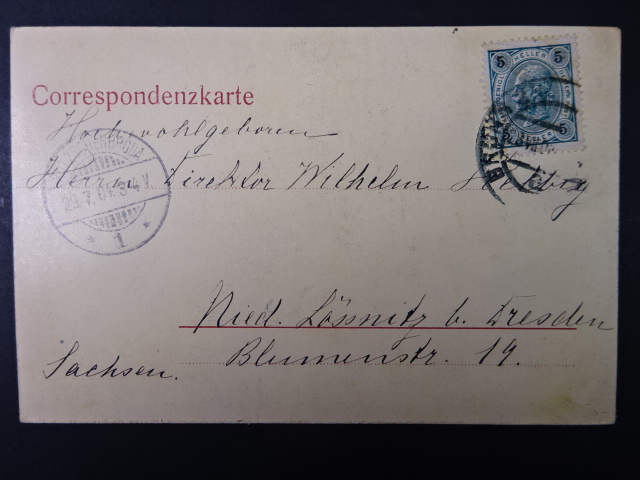 Correspondenzkarte
5 HELLER 5
5 5
Hochwohlgeboren
Herrn Direktor Wilhelm
29.7.01. 8-9 V.
* 1 *
Nied. Lössnitz b. Dresden
Blumenstr. 19.
Sachsen.